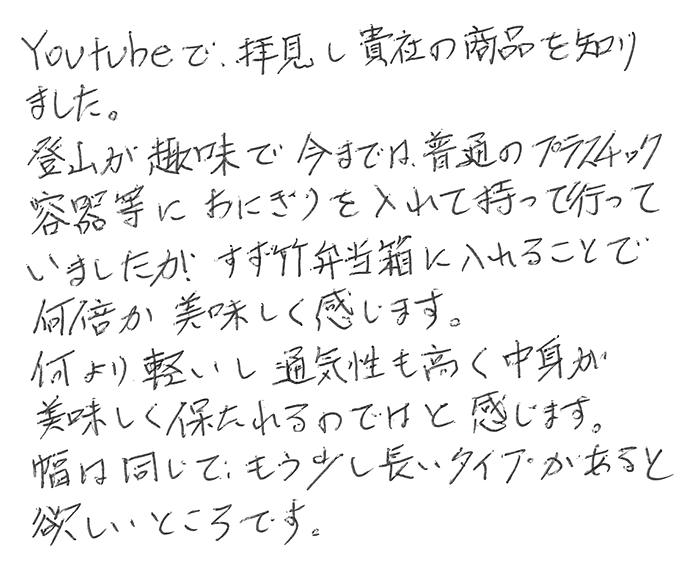 Youtubeで、拝見し貴社の商品を知り
ました。
登山が趣味で今までは、普通のプラスチック
容器等におにぎりを入れて持って行って
いましたが、すず竹弁当箱に入れることで
何倍か美味しく感じます。
何より、軽いし通気性も高く中身が
美味しく保たれるのではと感じます。
幅は同じで、もう少し長いタイプがあると
欲しいところです。